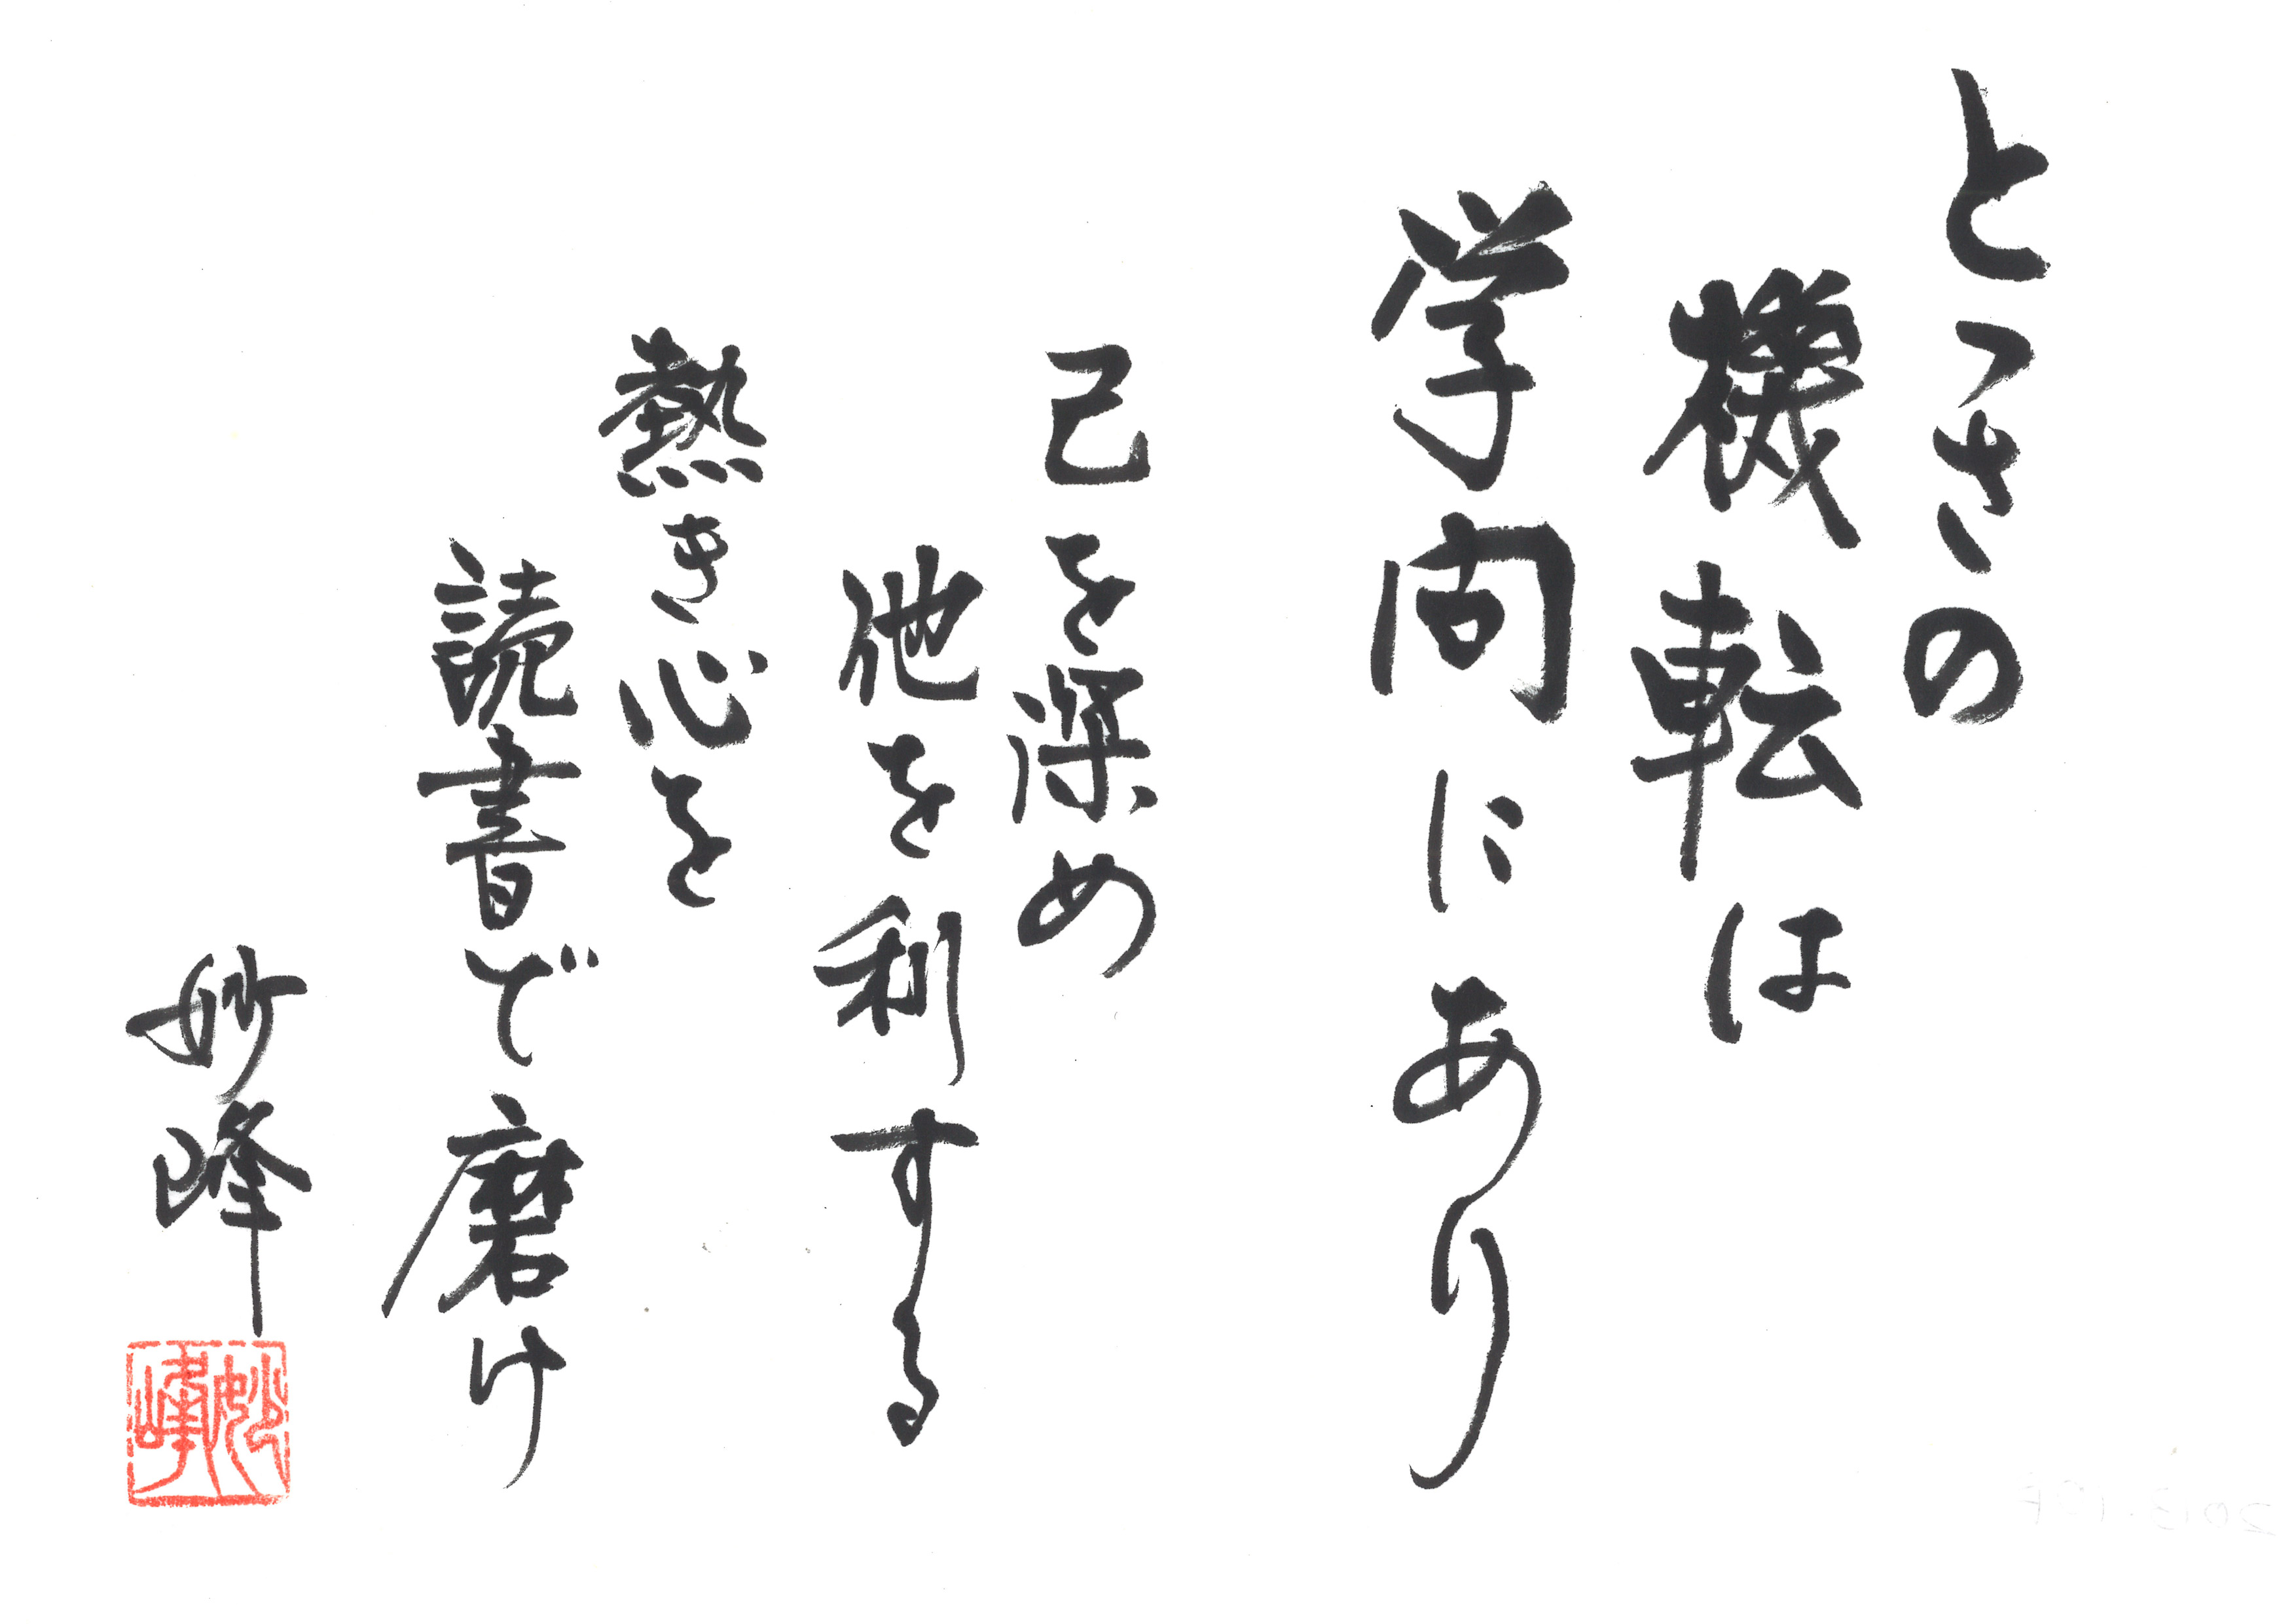 とっさの
機転は
学問にあり
己を深め
他を利する
熱き心を
読書で磨け
妙峰
妙峰